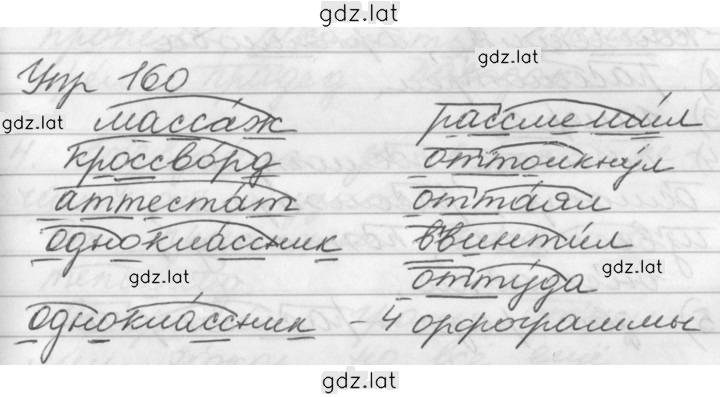 gdz.lat
gdz.lat
Упр 160
gdz.lat
массаж рассмешил
кроссворд оттолкнул
аттестат оттаял
одноклассник ввинтил
gdz.lat gdz.lat
оттуда
одноклассник – 4 орфограммы
gdz.lat